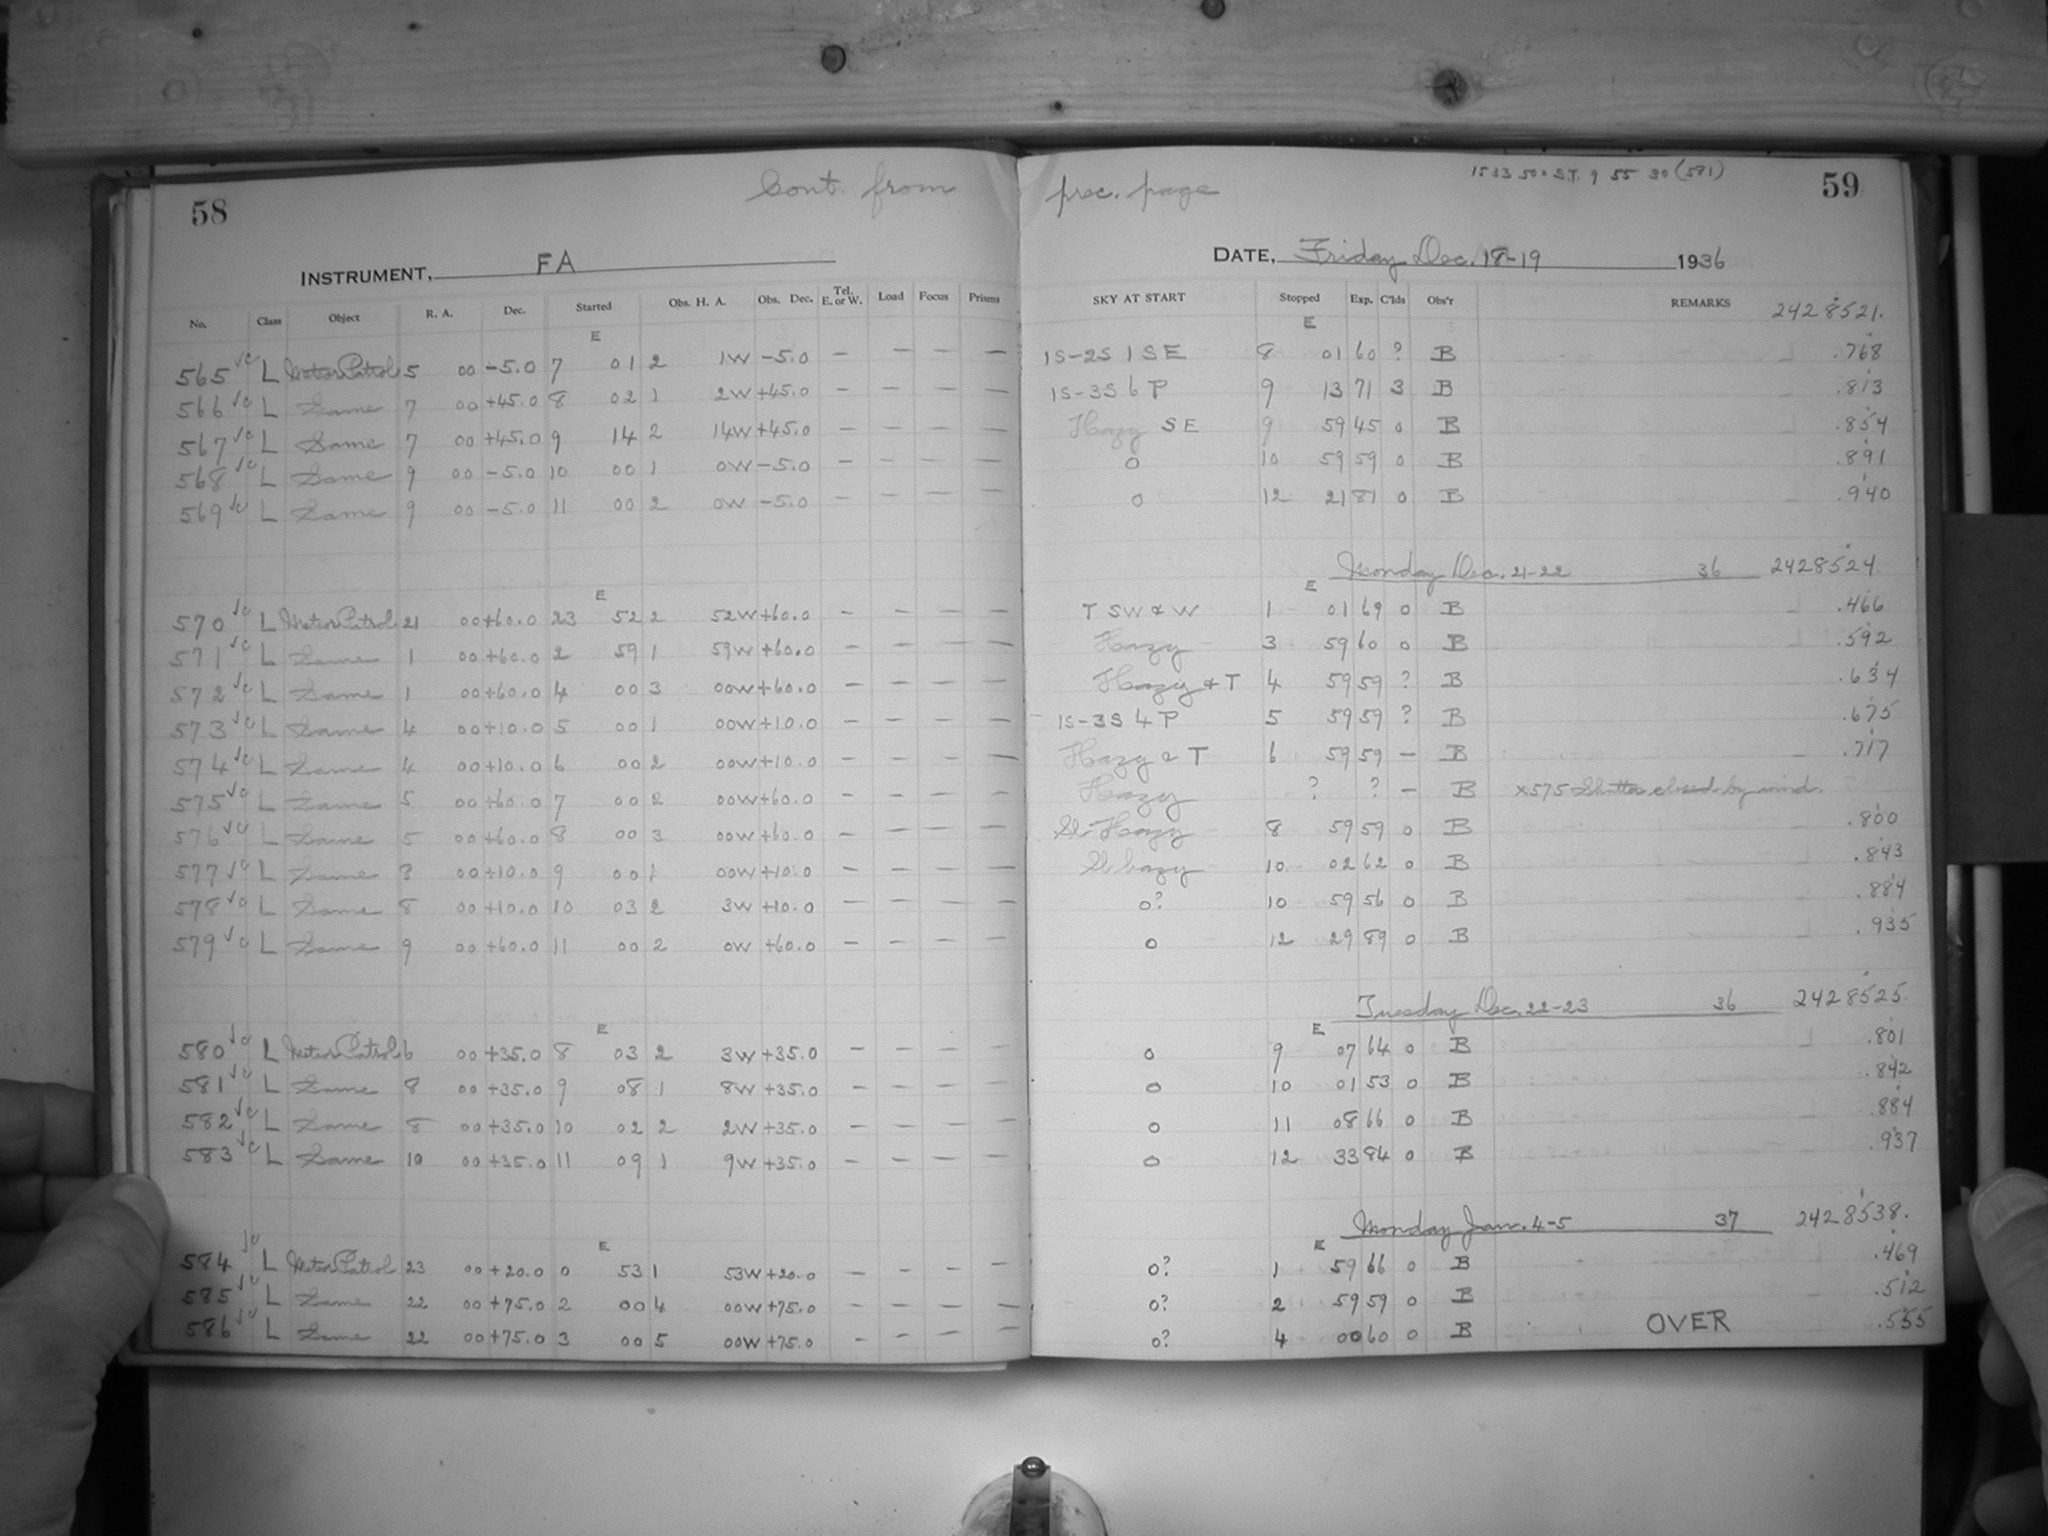 58
Cont. from prec. page
1533 50 x S.T. 9 55 30 (581)
59
INSTRUMENT, FA
DATE, Friday Dec. 18-19 1936
No. Class Object R. A. Dec. Started Obs. H. A. Obs. Dec. Tel. E. or W. Load Focus Prisms SKY AT START Stopped Exp. C'lds Obs'r REMARKS 2428521.
E E
565 L Meteor Patrol 5 00 -5.0 7 01 2 1W -5.0 — — — — 1S-2S 1 SE 8 01 60 ? B .768
566 L Same 7 00 +45.0 8 02 1 2W +45.0 — — — — 1S-3S 6 P 9 13 71 3 B .813
567 L Same 7 00 +45.0 9 14 2 14W +45.0 — — — — Hazy SE 9 59 45 0 B .854
568 L Same 9 00 -5.0 10 00 1 0W -5.0 — — — — 0 10 59 59 0 B .891
569 L Same 9 00 -5.0 11 00 2 0W -5.0 — — — — 0 12 21 81 0 B .940
Monday Dec. 21-22 36 2428524
E E
570 L Meteor Patrol 21 00 +60.0 23 52 2 52W +60.0 — — — — T SW & W 1 01 69 0 B .466
571 L Same 1 00 +60.0 2 59 1 59W +60.0 — — — — Hazy 3 59 60 0 B .592
572 L Same 1 00 +60.0 4 00 3 00W +60.0 — — — — Hazy & T 4 59 59 ? B .634
573 L Same 4 00 +10.0 5 00 1 00W +10.0 — — — — 1S-3S 4 P 5 59 59 ? B .675
574 L Same 4 00 +10.0 6 00 2 00W +10.0 — — — — Hazy & T 6 59 59 — B .717
575 L Same 5 00 +60.0 7 00 2 00W +60.0 — — — — Hazy ? ? — B x575 Shutter closed by wind.
576 L Same 5 00 +60.0 8 00 3 00W +60.0 — — — — Sl Hazy 8 59 59 0 B .800
577 L Same 8 00 +10.0 9 00 1 00W +10.0 — — — — Sl hazy 10 02 62 0 B .843
578 L Same 8 00 +10.0 10 03 2 3W +10.0 — — — — 0? 10 59 56 0 B .884
579 L Same 9 00 +60.0 11 00 2 0W +60.0 — — — — 0 12 29 89 0 B .935
Tuesday Dec. 22-23 36 2428525.
E E
580 L Meteor Patrol 6 00 +35.0 8 03 2 3W +35.0 — — — — 0 9 07 64 0 B .801
581 L Same 8 00 +35.0 9 08 1 8W +35.0 — — — — 0 10 01 53 0 B .842
582 L Same 8 00 +35.0 10 02 2 2W +35.0 — — — — 0 11 08 66 0 B .884
583 L Same 10 00 +35.0 11 09 1 9W +35.0 — — — — 0 12 33 84 0 B .937
Monday Jan. 4-5 37 2428538.
E E
584 L Meteor Patrol 23 00 +20.0 0 53 1 53W +20.0 — — — — 0? 1 59 66 0 B .469
585 L Same 22 00 +75.0 2 00 4 00W +75.0 — — — — 0? 2 59 59 0 B .512
586 L Same 22 00 +75.0 3 00 5 00W +75.0 — — — — 0? 4 00 60 0 B OVER .555